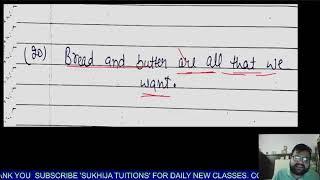 (20) Bread and butter are all that we
want.
ANK YOU SUBSCRIBE 'SUKHIJA TUITIONS' FOR DAILY NEW CLASSES. CO